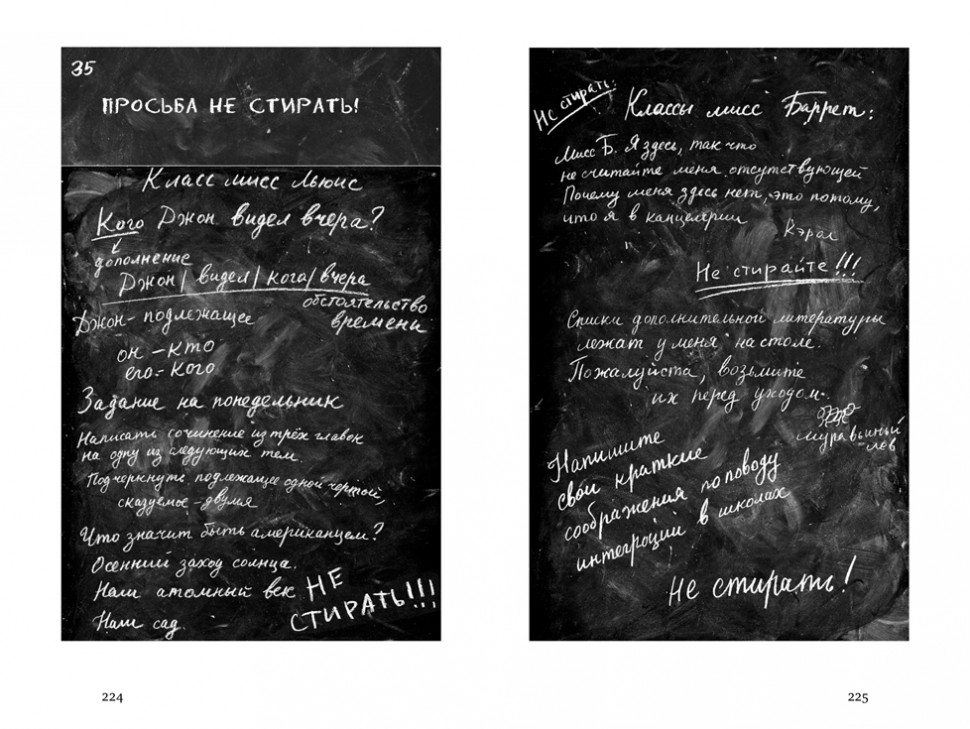 35
ПРОСЬБА НЕ СТИРАТЬ!
Класс мисс Льюис
Кого Джон видел вчера?
дополнение
Джон/ видел/ кого/ вчера
обстоятельство
времени
Джон - подлежащее
он - кто
его - кого
Задание на понедельник
Написать сочинение из трёх главок
на одну из следующих тем.
Подчеркнуть подлежащее одной чертой,
сказуемое - двумя
Что значит быть американцем?
Осенний заход солнца.
Наш атомный век
Наш сад.
НЕ
СТИРАТЬ!!!
224
Не стирать!
Классы мисс Баррет:
Мисс Б. Я здесь, так что
не считайте меня отсутствующей
Почему меня здесь нет, это потому,
что я в канцелярии
Кэрол
Не стирайте!!!
Списки дополнительной литературы
лежат у меня на столе.
Пожалуйста, возьмите
их перед уходом.
муравьиный
лев
Напишите
свои краткие
соображения по поводу
интеграции в школах
Не стирать!
225